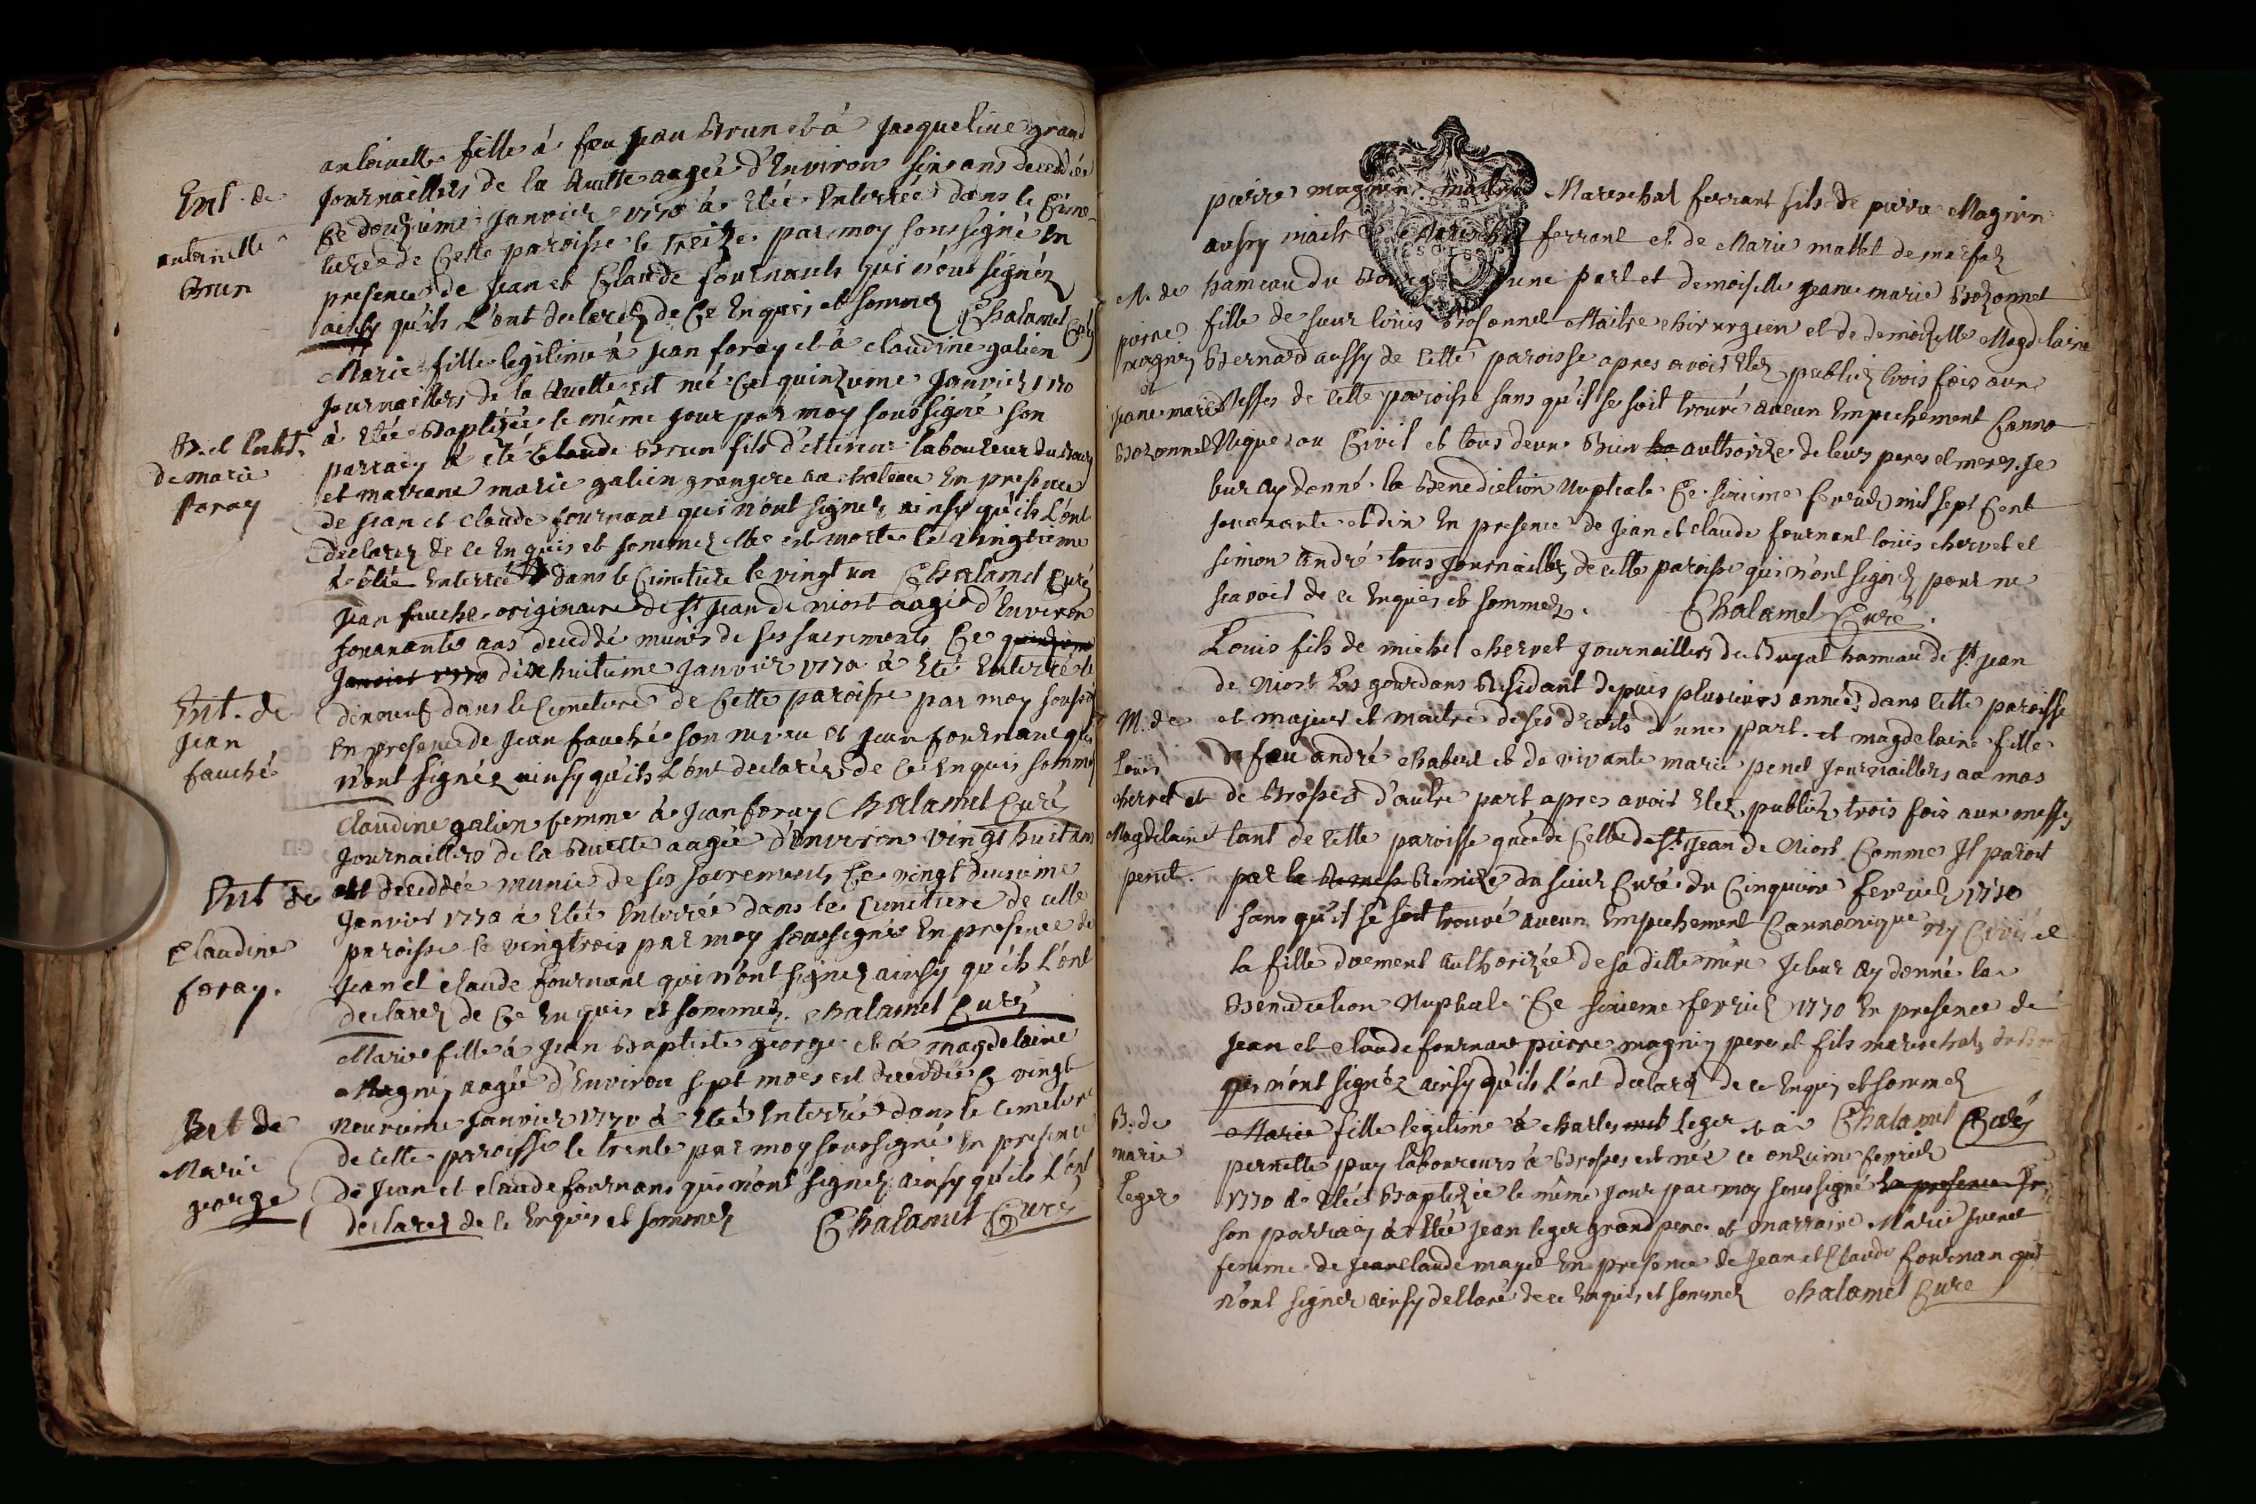 Ent. de
antoinette
Brun
antoinette fille à feu Jean Brun et à Jacqueline grand
Journailliers de la Auette aagée d'Environ sinc ans decedée
Ce douzieme Janvier 1770 à Eté Enterrée dans le Cime-
tiere de Cette paroisse le treize par moy soussigné En
presence de Jean et Claude fournants qui n'ont signéz
ainsy qu'ils L'ont declaréz de Ce Enquis et sommez Chalamel Curé
B. et Entt.
de marie
foray
Marie fille legitime à Jean foray et à claudine galien
Journailliers de la Auette est née Cet quinzieme Janvier 1770
à Eté Baptisée le même Jour par moy soussigné son
parrain à eté Claude Brun fils d'Etienne laboureur du Bourg
et marrane marie galien grangere au chateau En presence
de Jean et Claude fournant qui n'ont signez ainsy qu'ils L'ont
declarez de ce Enquis et sommez Elle est morte le vingtieme
à êtée Enterrée dans le Cimetiere le vingt un Chalamel Curé
Ent. de
Jean
fauché
Jean fauche originaire de St Jean de niort aagé d'Environ
soixante ans decedé munis de ses sacrements Ce quinzieme
Janvier 1770 dix huitieme Janvier 1770 à Eté Enterré le
dixneuf dans le Cimetiere de Cette paroisse par moy soussigné
En presence de Jean fauché son neveu et Jean fournant qui
n'ont signéz ainsy qu'ils L'ont declaréz de ce Enquis sommez
Ent de
Claudine
foray.
Claudine galien femme à Jean foray Chalamel Curé
Journailliers de la Auette aagée d'Environ vingt huit ans
est decedée munie de ses sacrements Ce vingt deuxieme
Janvier 1770 à Eté Enterrée dans le Cimetiere de cette
paroisse le vingtrois par moy soussigné En presence de
Jean et Claude fournant qui n'ont signez ainsy qu'ils L'ont
declarez de Ce Enquis et sommez. Chalamel Curé
Ent de
Marie
george
Marie fille à Jean Baptiste george et à magdelaine
Magnin aagée d'Environ sept mois est decedée Ce vingt
neuvieme Janvier 1770 à Eté Enterrée dans le Cimetiere
de cette paroisse le trente par moy soussigné En presence
de Jean et Claude fournans qui n'ont signez ainsy qu'ils L'ont
declarez de ce Enquis et sommez Chalamel Curé
M. de
pierre
magnin
et
Jeane marie
Bozonnel
pierre magnin maitre Mareschal ferrant fils de pierre Magnin
aussy maitre Mareschal ferrant et de Marie mallet de marfoz
hameau du Bourg d'une part et demoiselle Jeane marie Bozonnel
fille de sieur louis Bosonnel Maitre chirurgien et de demoizelle Magdelaine
Bernard aussy de Cette paroisse apres avoir Etez publiéz trois fois aux
Messes de Cette paroisse sans qu'il se soit trouvé aucun Empechement Canno
Nique ou Civil et tous deux Bien authorizé de leurs peres et meres. Je
leur ay donné la Benediction Nuptiale Ce sixieme fevrier mil sept Cent
soixante et dix En presence de Jean et Claude fournant louis chervet et
simon André tous Journailliers de Cette paroisse qui n'ont signéz pour ne
scavoir de ce Enquis et sommez. Chalamel Curé.
M. de
Louis
chervet et
Magdelaine
penet.
Louis fils de michel chervet Journailliers du Bugal hameau de St Jean
de Niort Les gourdans Residant depuis plusieurs années dans Cette paroisse
et majeur et maitre de ses droits d'une part. et magdelaine fille
de feu andré chabert et de vivante marie penet Journailliers au mas
de Brosses d'autre part apres avoir Etez publiéz trois fois aux messes
tant de Cette paroisse que de Celle de St Jean de Niort Comme Il paroit
par la Remise du sieur Curé du Cinquieme fevrier 1770
sans qu'il se soit trouvé aucun Empechement Cannonique ny Civil et
la fille duement Authorizée de sa ditte mere Je leur Ay donné la
Benediction Nuptiale Ce sixieme fevrier 1770 En presence de
Jean et Claude fournant pierre magnin pere et fils mareschals
qui n'ont signéz ainsy qu'ils L'ont declaré de ce Enquis et sommez
Chalamel Curé
B. de
marie
Leger
Marie fille legitime à charles Leger et à
pernette puy laboureurs à Brosses est née ce onzieme fevrier
1770 à Etée Baptizée le même Jour par moy soussigné la presence
son parrain à Etée Jean leger grand pere et marraine Marie
femme de Jean Claude mayet En presence de Jean et Claude fournan qui
n'ont signez ainsy declaré de ce Enquis et sommez Chalamel Curé